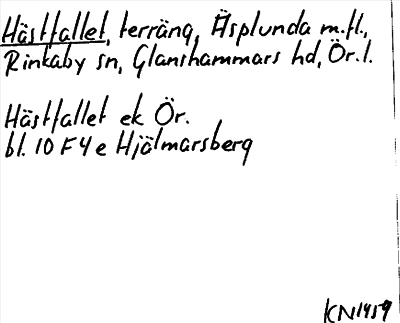 Hästfallet, terräng, Äsplunda m.fl.,
Rinkaby sn, Glanshammars hd, Ör.l.
Hästfallet ek Ör.
bl. 10 F 4 e Hjälmarsberg
KN1959